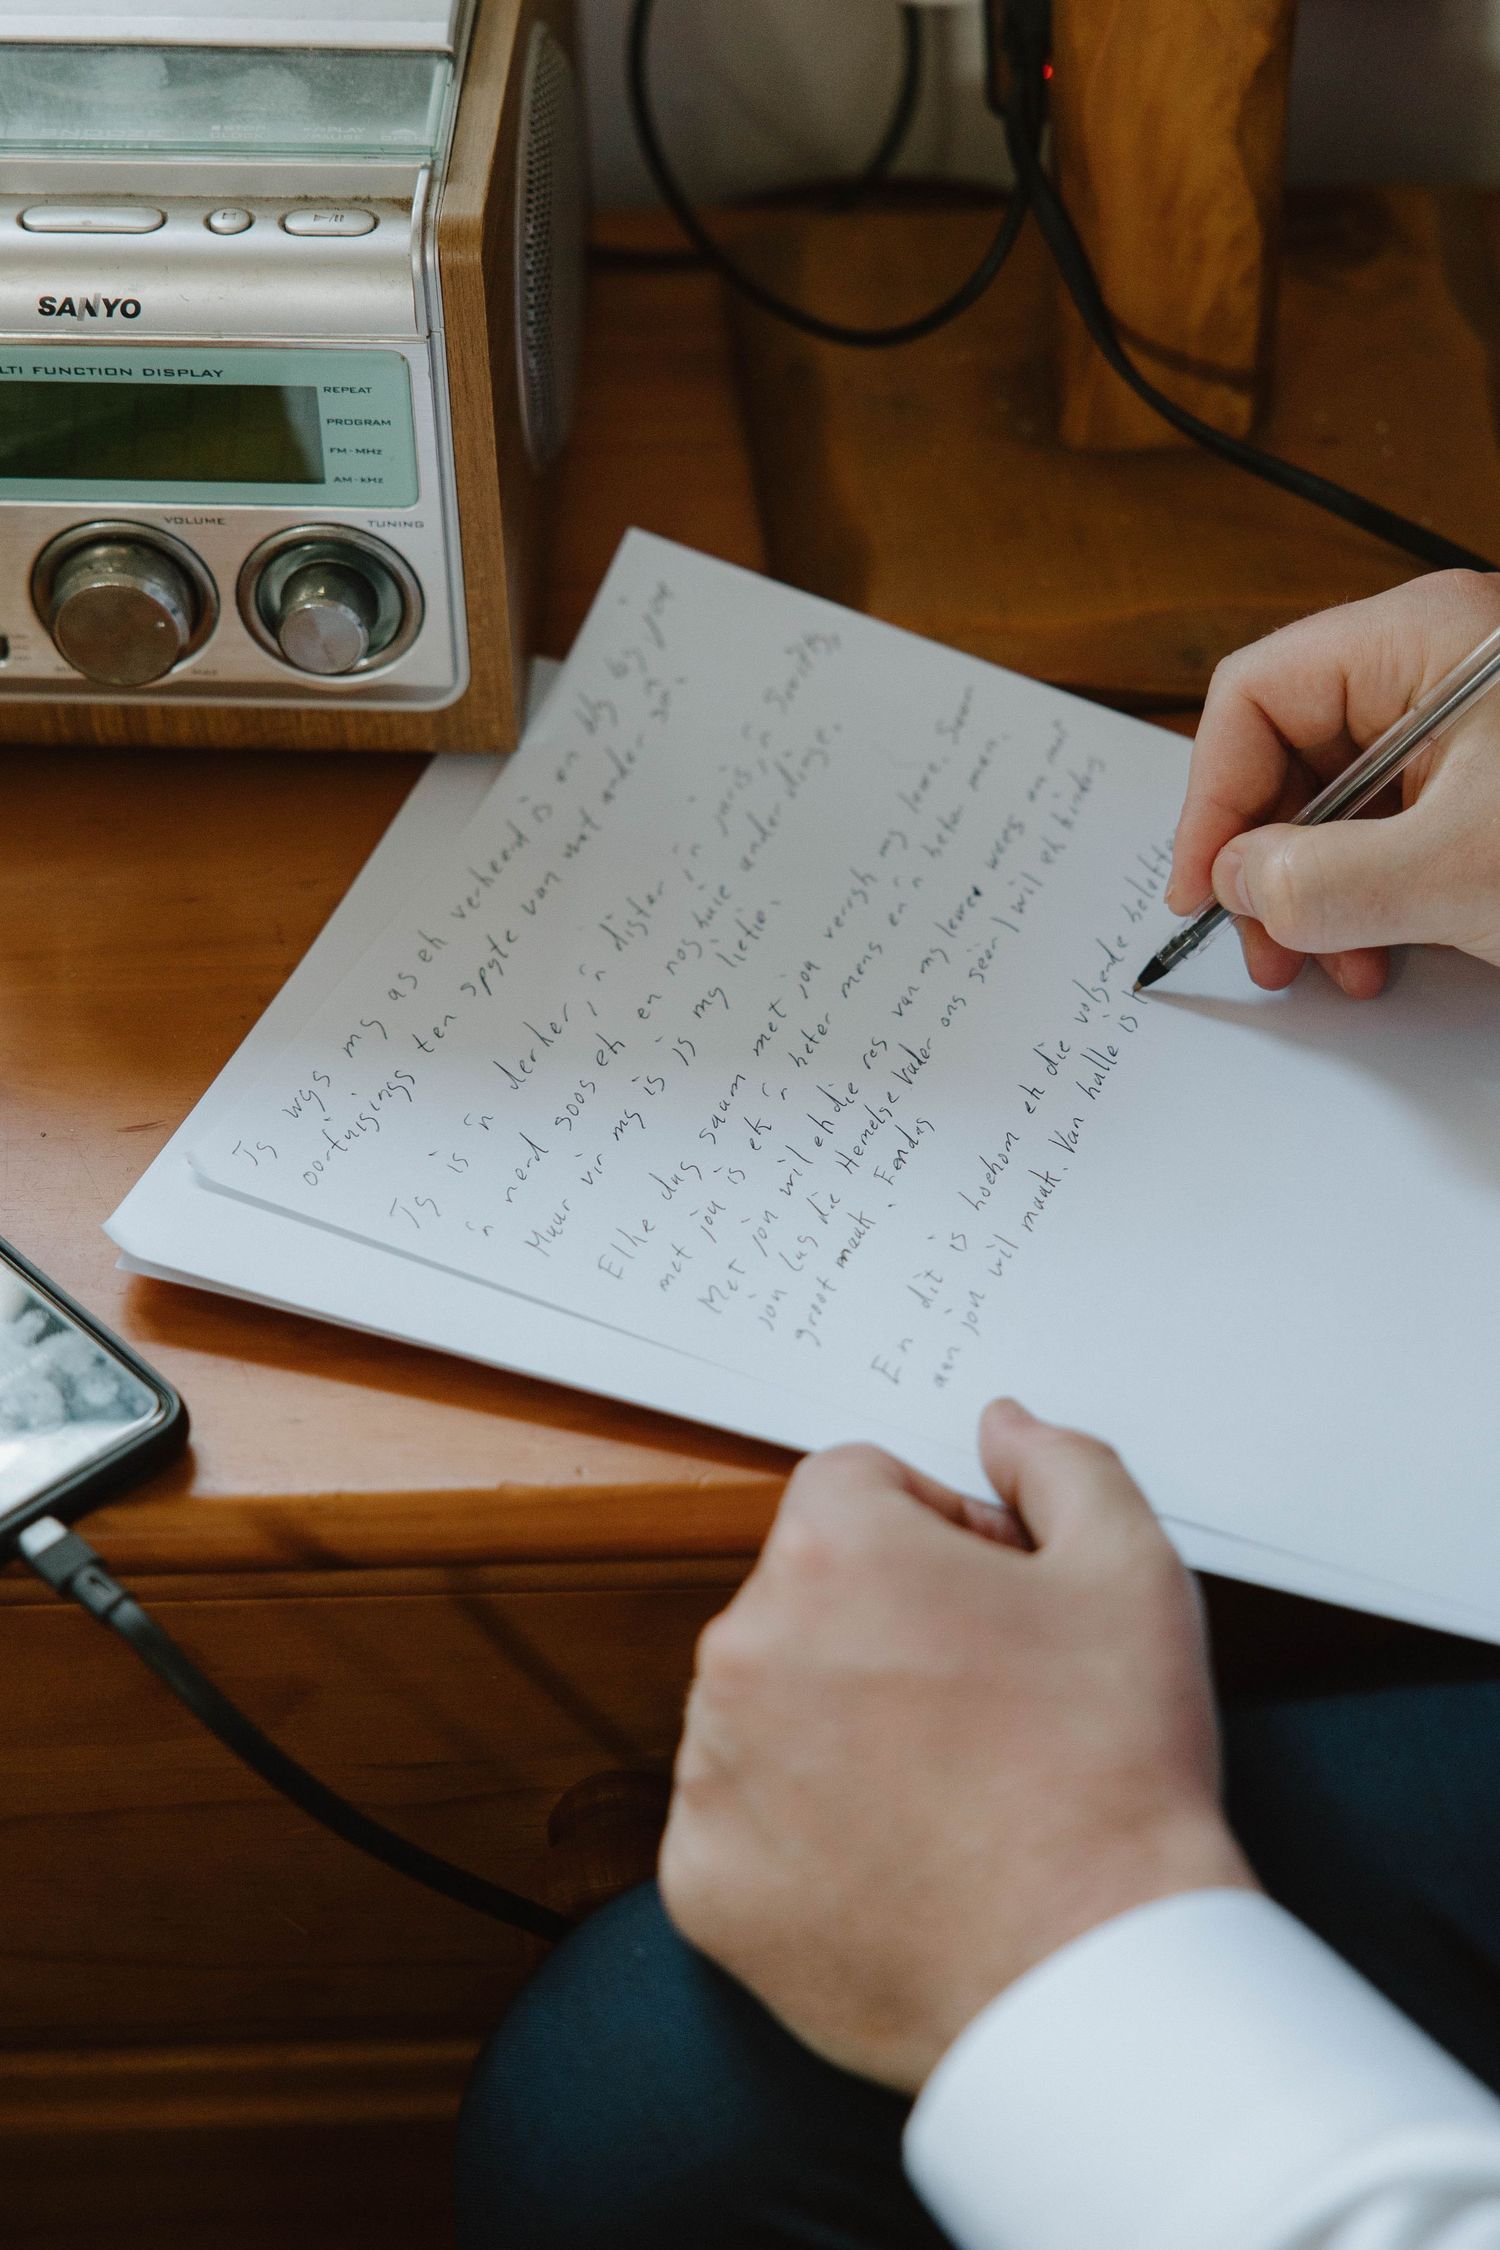 SNOOZE
STOP
CLOCK
PLAY
PAUSE
SANYO
LTI FUNCTION DISPLAY
REPEAT
PROGRAM
FM-MHz
AM-kHz
VOLUME
TUNING
Jy wys my as ek verkeerd is en bly by jou
oortuigings ten spyte van wat ander sê.
Jy is 'n denker, 'n digter, 'n juris, 'n
'n nerd soos ek en nog baie ander dinge.
Maar vir my is jy my liefie.
Elke dag saam met jou verryk my lewe. Saam
met jou is ek 'n beter mens en 'n beter man.
Met jou wil ek die res van my lewe wees en met
jou lag die Hemelse Vader ons seën wil ek kinders
groot maak. Eendag
En dit is hoekom ek die volgende beloftes
aan jou wil maak. Van hulle is